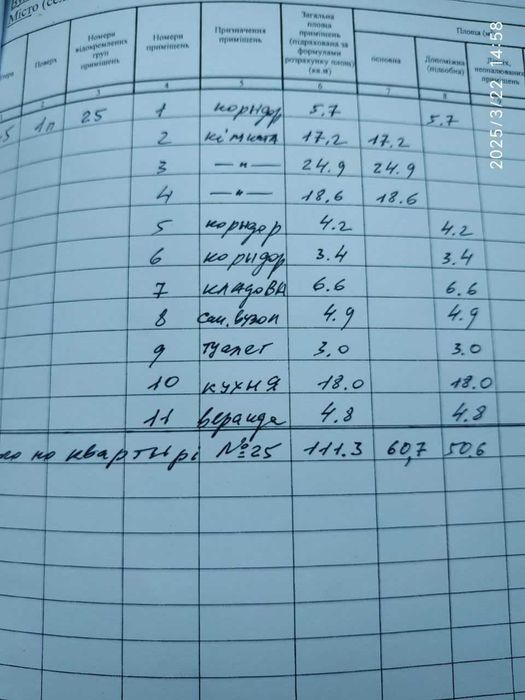 Місто (се
Поверх
Номери відокремлених груп приміщень
Номери приміщень
Призначення приміщень
Загальна площа приміщень (підрахована за формулами розрахунку площ) (кв.м)
Площа (м
основна
Допоміжна (підсобна)
неопалюваних приміщень
2 3 4 5 6 7 8
1п 25 1 коридор 5.7 5.7
2 кімната 17,2 17,2
3 —"— 24.9 24.9
4 —"— 18,6 18.6
5 коридор 4.2 4.2
6 коридор 3.4 3.4
7 кладова 6.6 6.6
8 сан.вузол 4.9 4.9
9 туалет 3,0 3.0
10 кухня 18.0 18.0
11 веранда 4.8 4.8
по квартирі №25 111.3 60,7 50.6
2025/3/22 14:58